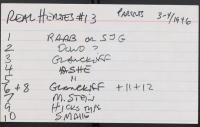 REAL HEROES #13
PARENTS 3-4/1946
1 RAAB OR SJG
2 DUVO ?
3 GLANCKOFF
4 ASHE
5 "
6+8 GLANCKOFF +11+12
7 M. STEIN
9 HICKS THIS
10 SMALLE